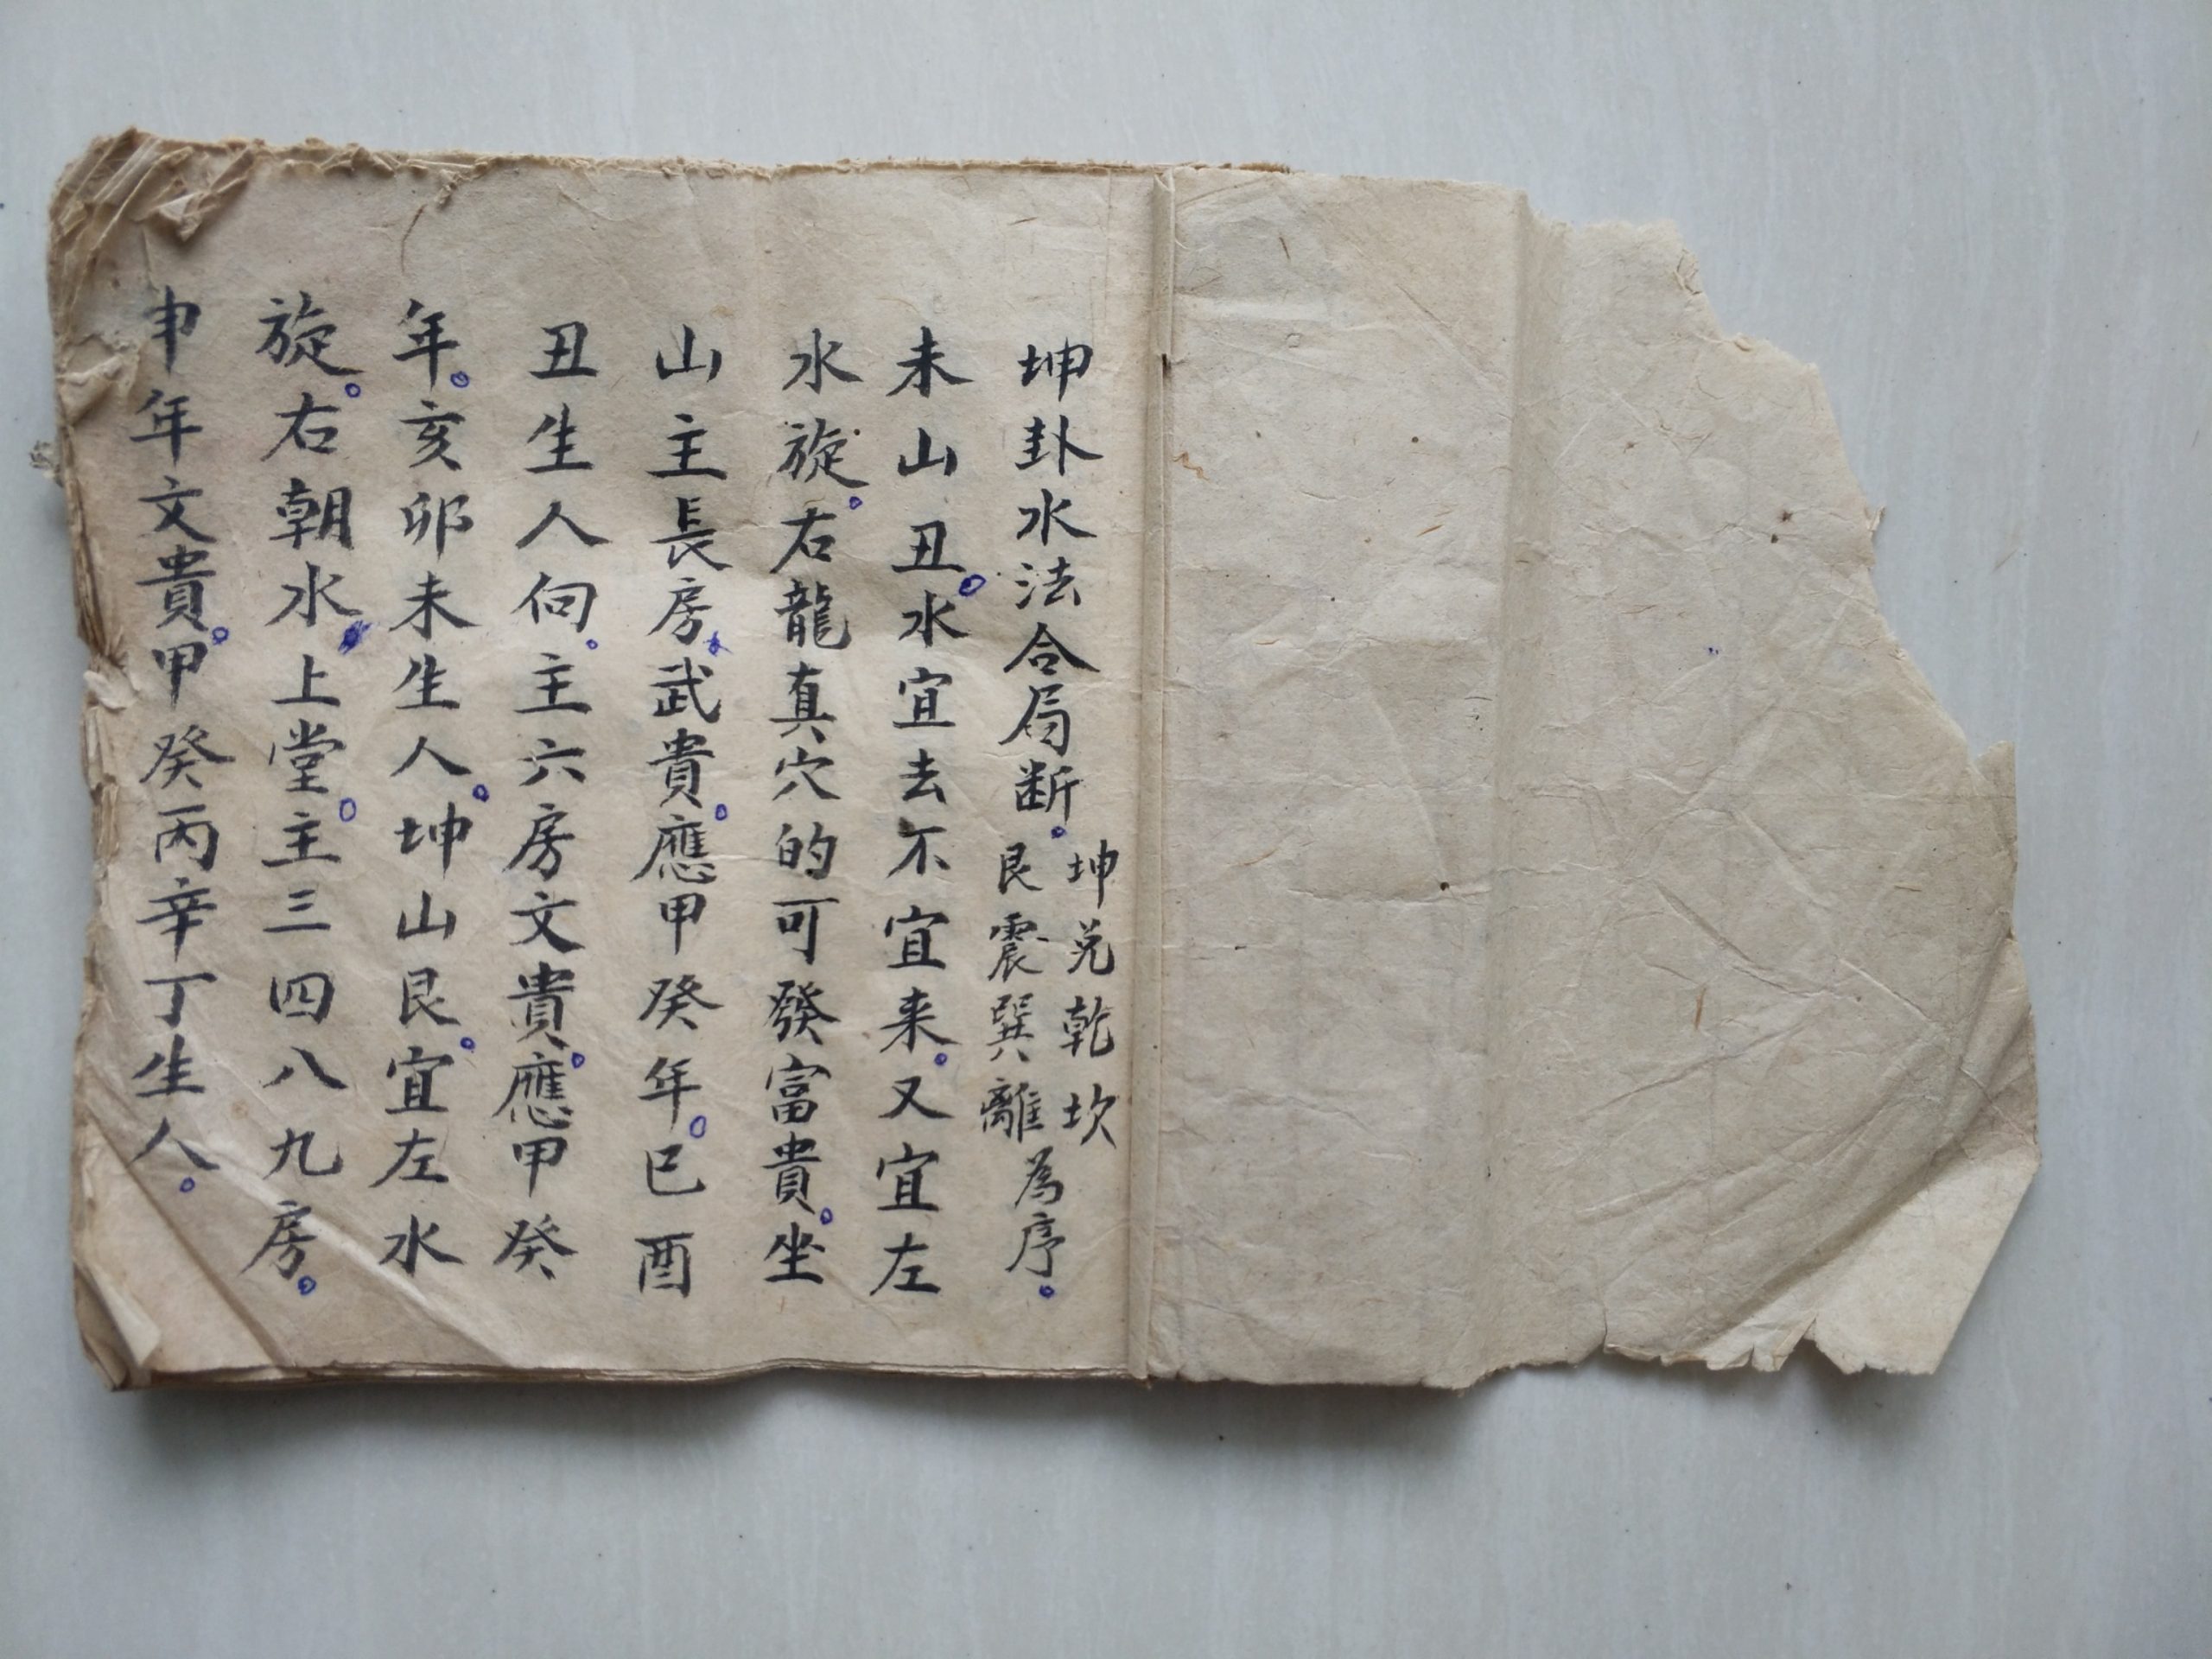 坤卦水法合局断。坤兑乾坎艮震巽離為序。
未山丑。水宜去不宜来。又宜左
水旋。右龍真穴的可發富貴。坐
山主長房、武貴。應甲癸年。巳酉
丑生人向。主六房文貴。應甲癸
年。亥卯未生人。坤山艮。宜左水
旋。右朝水、上堂。主三四八九房。
申年文貴。甲癸丙辛丁生人。